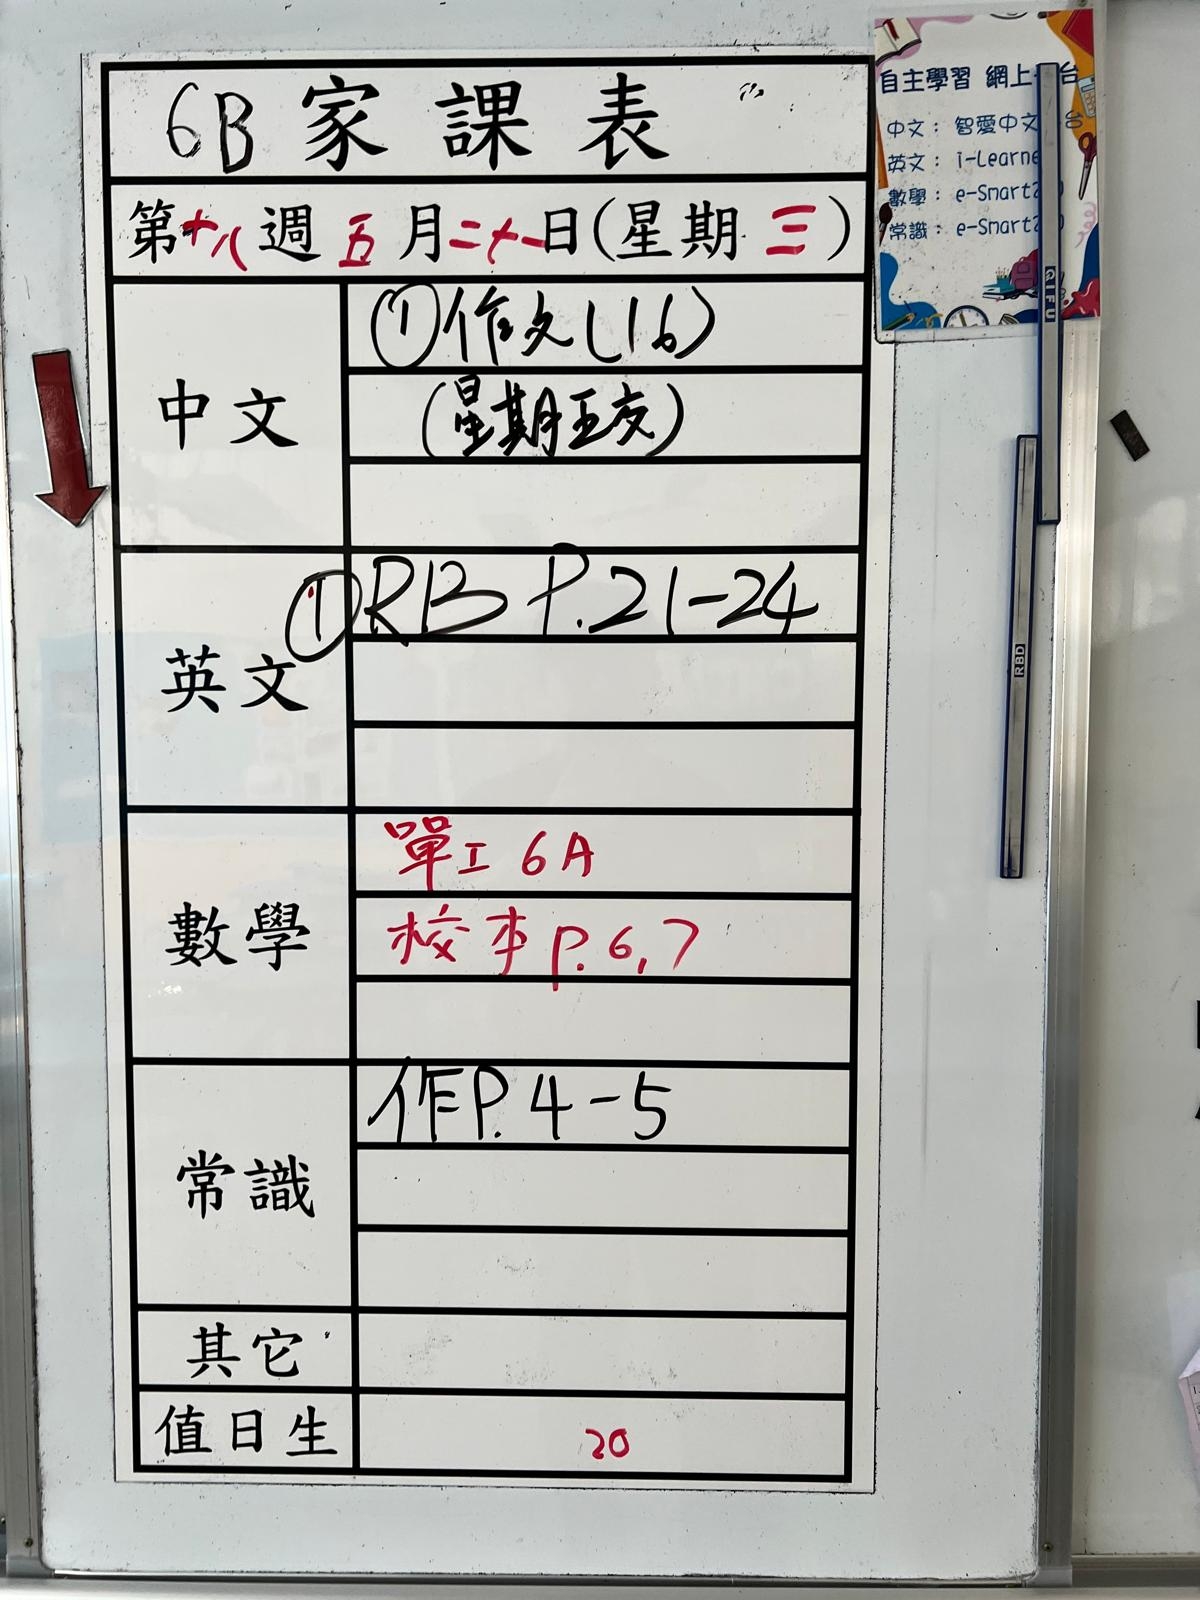 6B家課表
第十八週五月二十一日(星期三)
中文
①作文(16)
(星期五交)
英文
①RB P.21-24
數學
單工6A
校本P.6,7
常識
作P.4-5
其它
值日生
20
自主學習 網上
台
中文：智愛中文
台
英文：i-Learne
數學：e-Smart
常識：e-Smart
QIFU
RBD